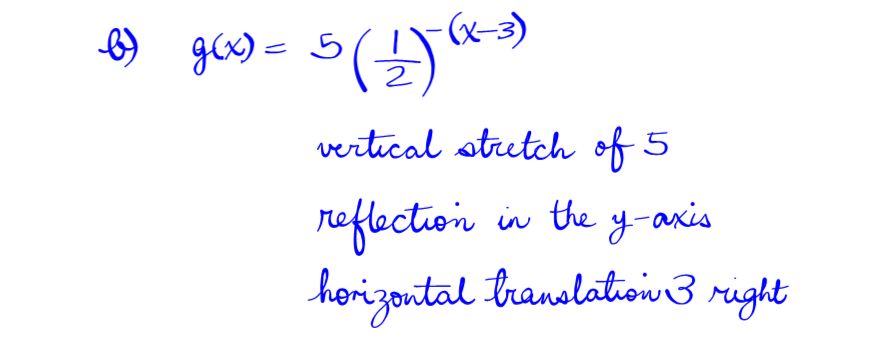 b) g(x) = 5(1/2)^-(x-3)
vertical stretch of 5
reflection in the y-axis
horizontal translation 3 right